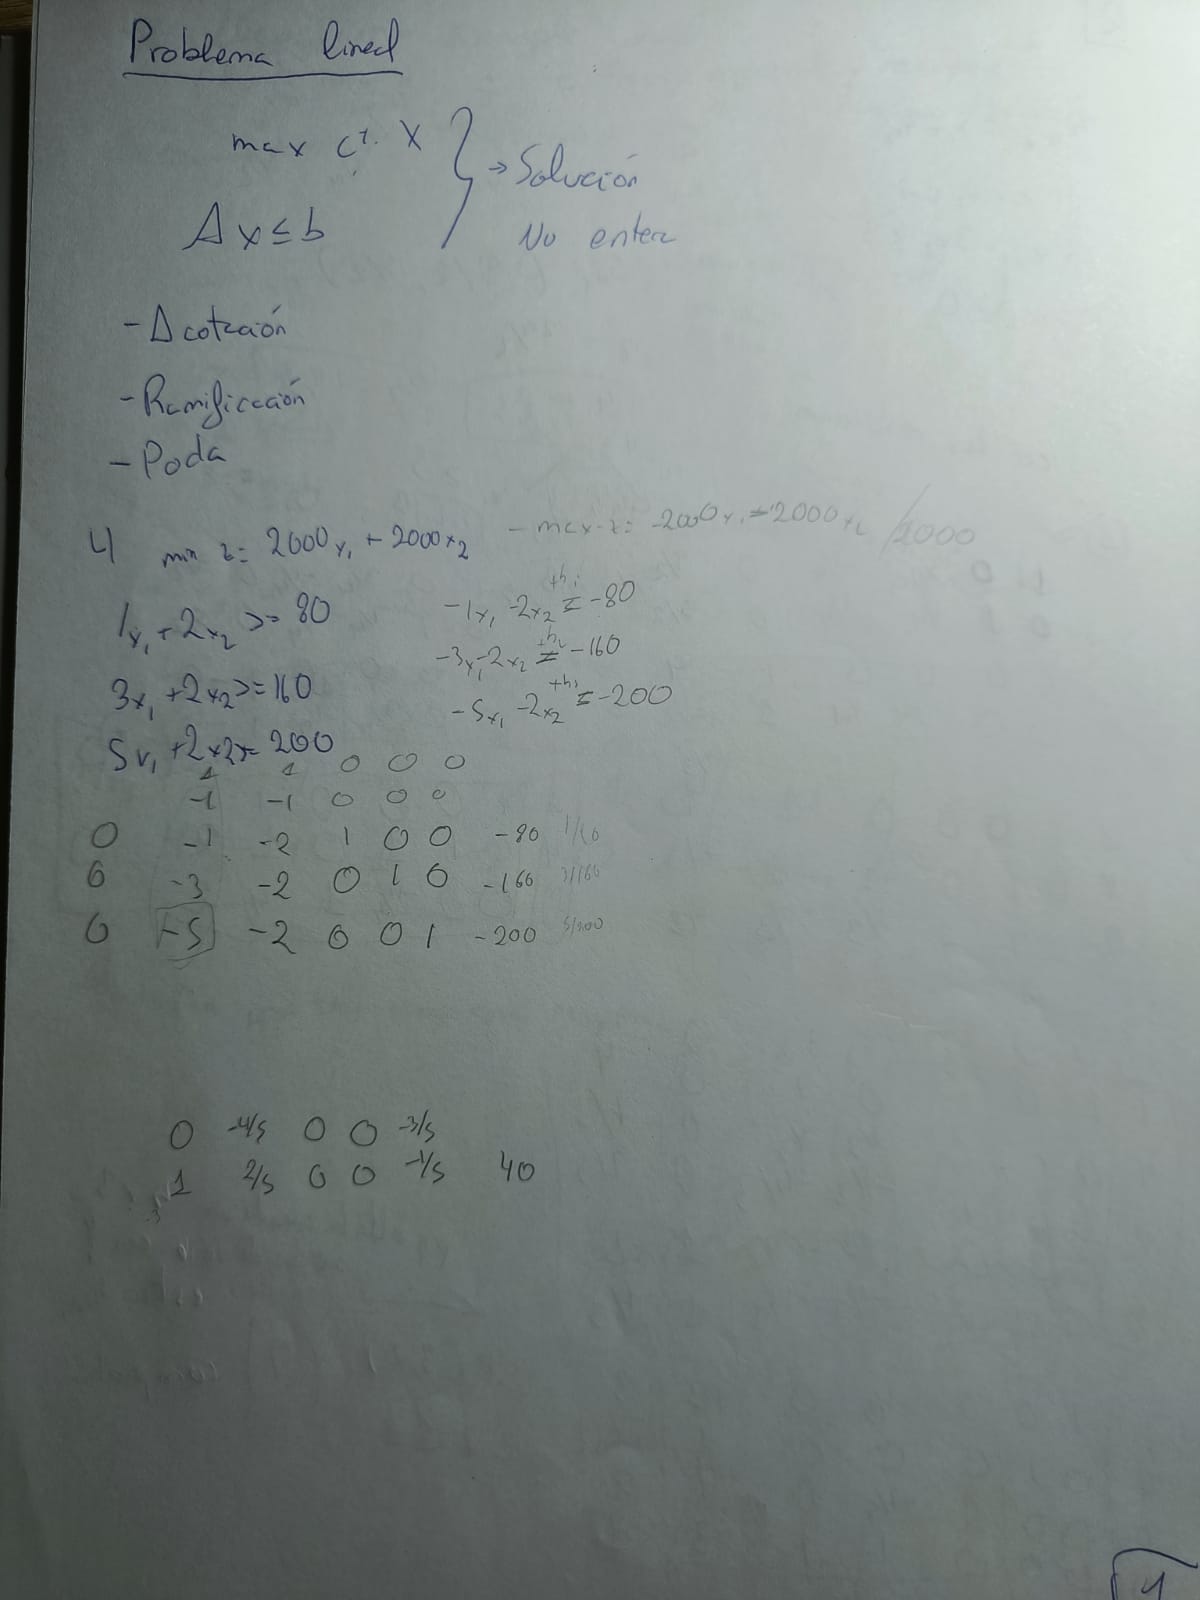 Problema lineal
max cᵗ· X } → Solución
Ax ≤ b No entera
- Acotación
- Ramificación
- Poda
4 min z = 2000x₁ + 2000x₂ - max -z = -2000x₁ - 2000x₂ /2000
1x₁ + 2x₂ >= 80 -1x₁ -2x₂ +h₁ = -80
3x₁ + 2x₂ >= 160 -3x₁ -2x₂ +h₂ = -160
5x₁ + 2x₂ >= 200 -5x₁ -2x₂ = -200
1 1 0 0 0
-1 -1 0 0 0
0 -1 -2 1 0 0 -80
0 -3 -2 0 1 0 -160 3/160
0 -5 -2 0 0 1 -200 5/200
0 0 0 -3/5
1 2/5 0 0 -1/5 40